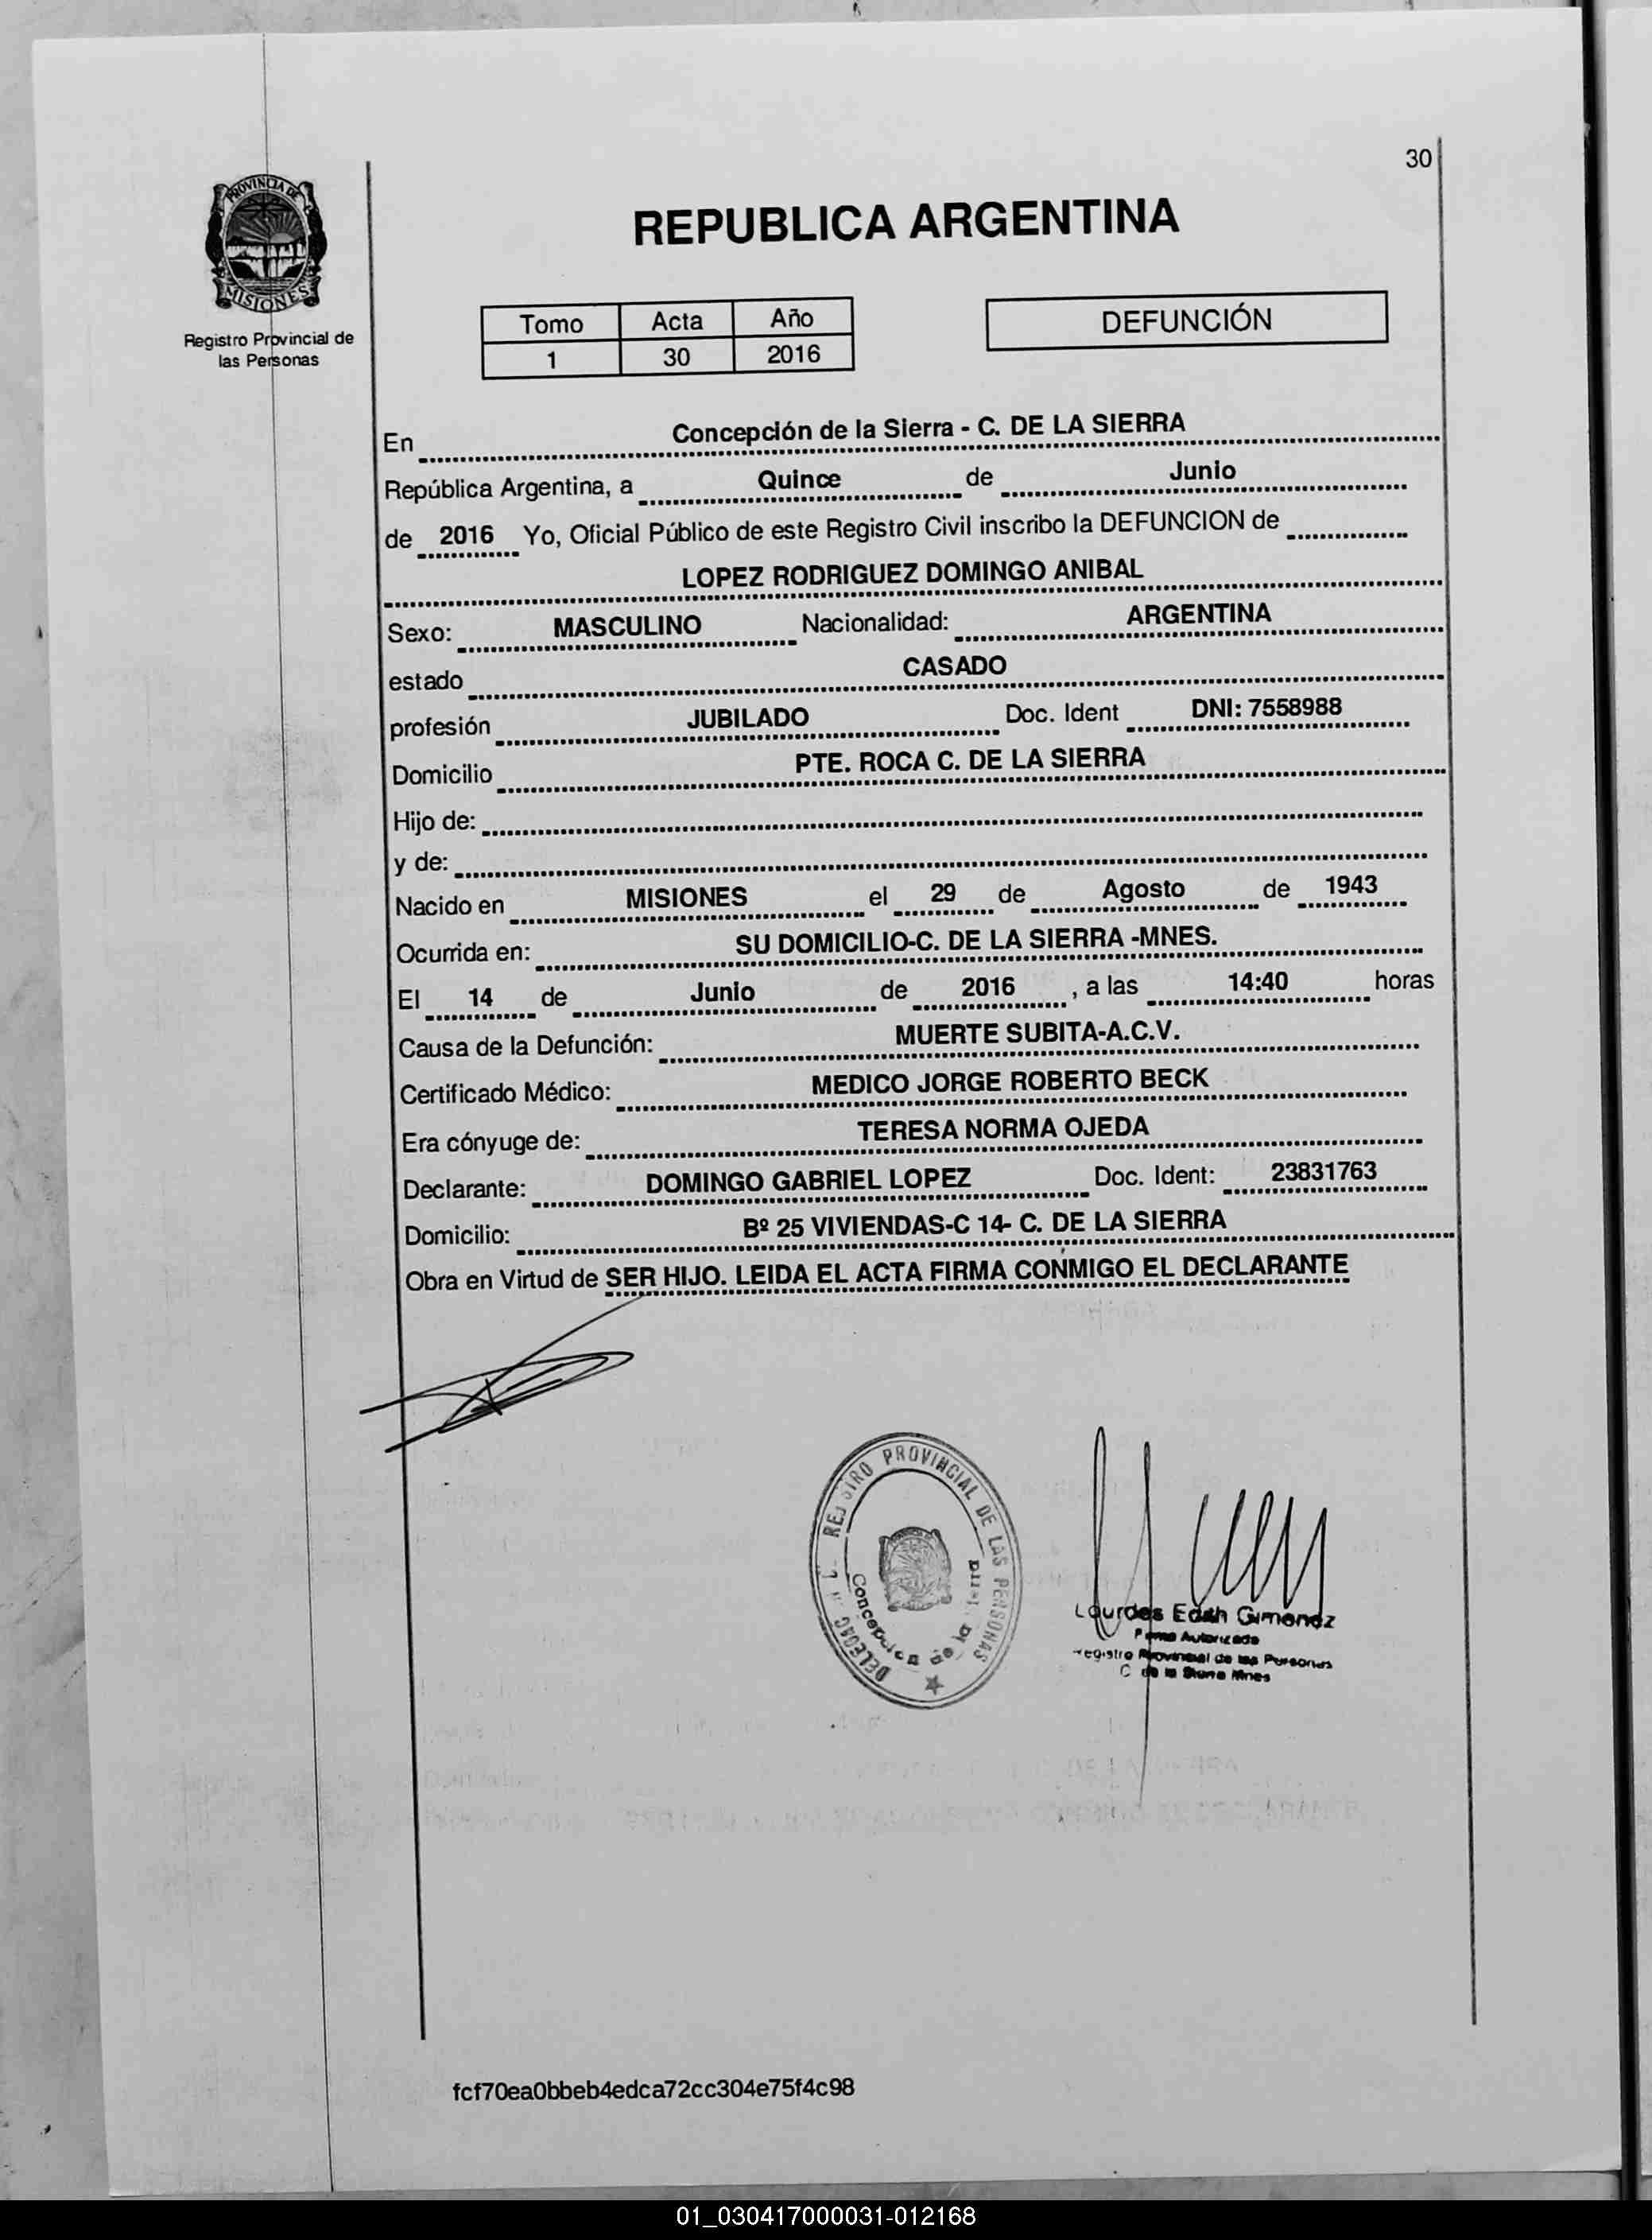 30
PROVINCIA DE
MISIONES
Registro Provincial de
las Personas
REPUBLICA ARGENTINA
Tomo Acta Año
1 30 2016
DEFUNCIÓN
En Concepción de la Sierra - C. DE LA SIERRA
República Argentina, a Quince de Junio
de 2016 Yo, Oficial Público de este Registro Civil inscribo la DEFUNCION de
LOPEZ RODRIGUEZ DOMINGO ANIBAL
Sexo: MASCULINO Nacionalidad: ARGENTINA
estado CASADO
profesión JUBILADO Doc. Ident DNI: 7558988
Domicilio PTE. ROCA C. DE LA SIERRA
Hijo de:
y de:
Nacido en MISIONES el 29 de Agosto de 1943
Ocurrida en: SU DOMICILIO-C. DE LA SIERRA -MNES.
El 14 de Junio de 2016 , a las 14:40 horas
Causa de la Defunción: MUERTE SUBITA-A.C.V.
Certificado Médico: MEDICO JORGE ROBERTO BECK
Era cónyuge de: TERESA NORMA OJEDA
Declarante: DOMINGO GABRIEL LOPEZ Doc. Ident: 23831763
Domicilio: Bº 25 VIVIENDAS-C 14- C. DE LA SIERRA
Obra en Virtud de SER HIJO. LEIDA EL ACTA FIRMA CONMIGO EL DECLARANTE
PROVINCIAL DE LAS PERSONAS
Concepcion de la
Lourdes Edith Gimenez
Firma Autorizada
Registro Provincial de las Personas
C de la Sierra Mnes
fcf70ea0bbeb4edca72cc304e75f4c98
01_030417000031-012168